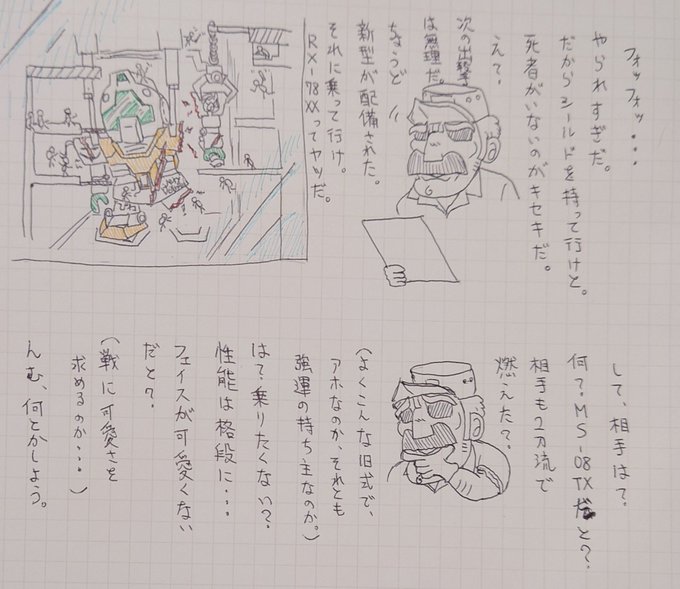 フォッフォッ・・・
やられすぎだ。
だからシールドを持って行けと。
死者がいないのがキセキだ。
え？、
次の出撃
は無理だ。
ちょうど
新型が配備された。
それに乗って行け。
RX-78XXってヤツだ。
して、相手は？。
何？、MS-08TXだと？。
相手も2刀流で
燃えた？。
(よくこんな旧式で、
アホなのか、それとも
強運の持ち主なのか。)
は？、乗りたくない？。
性能は格段に・・・
フェイスが可愛くない
だと？、
(戦に可愛さを
求めるのか・・・)
んむ、何とかしよう。